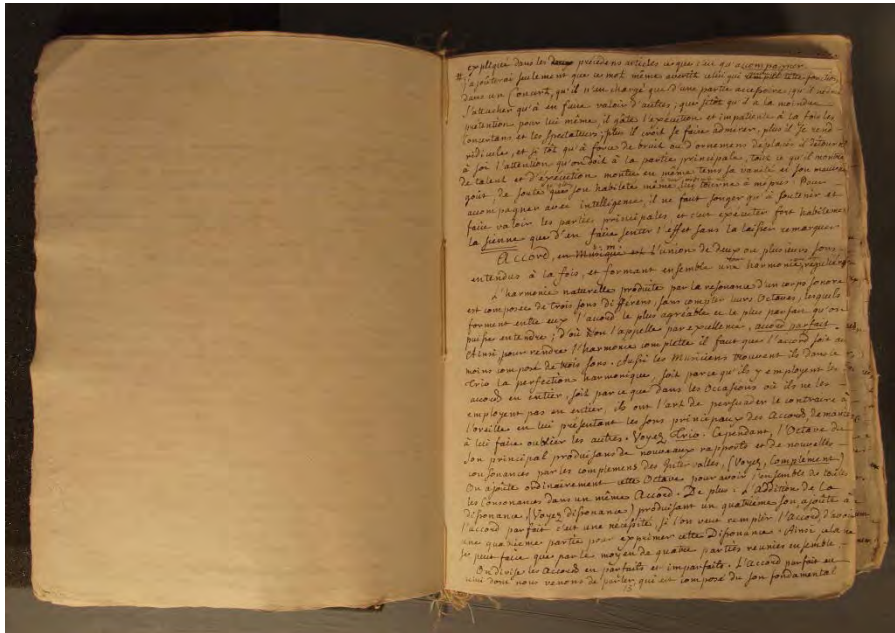 expliqué dans les précédens articles ce que c'est qu'accompagner
j'ajouterai seulement que ce mot même avertit celui qui
dans un Concert, qu'il n'est chargé que d'une partie accessoire, qu'il ne doit
s'attacher qu'à en faire valoir d'autres; que sitôt qu'il a la moindre
prétention pour lui même, il gâte l'exécution et impatiente à la fois les
Concertans et les Spectateurs; plus il croit se faire admirer, plus il se rend
ridicule, et si tôt qu'à force de bruit ou d'ornemens déplacés il détourne
à soi l'attention qu'on doit à la partie principale, tout ce qu'il montre
de talent et d'exécution montre en même tems sa vanité et son mauvais
goût, Pour
accompagner avec intelligence, il ne faut songer qu'à soutenir et
faire valoir les parties principales et c'est exécuter fort habilement
la sienne que d'en faire sentir l'effet sans la laisser remarquer
Accord, L'union de deux ou plusieurs sons
entendus à la fois, et formant ensemble une harmonie régulière
L'harmonie naturelle produite par la resonance d'un corps sonore
est composée de trois sons differens, sans compter leurs Octaves, lesquels
forment entre eux l'accord le plus agréable et le plus parfait qu'on
puisse entendre; d'où on l'appelle par excellence, accord parfait.
Ainsi pour rendre l'harmonie complette il faut que l'accord soit au
moins composé de trois sons. Aussi les Musiciens trouvent ils dans le
Trio la perfection harmonique, soit parce qu'ils y employent les
accords en entier, soit parce que dans les Occasions où ils ne les
employent pas en entier, ils ont l'art de persuader le contraire à
l'oreille en lui présentant les sons principaux des Accords, de manière
à lui faire oublier les autres. Voyez Trio. Cependant, l'Octave du
son principal produisans de nouveaux rapports et de nouvelles
consonances par les complemens des Intervalles, (Voyez, Complément)
On ajoûte ordinairement cette Octave pour avoir l'ensemble de toutes
les Consonances dans un même Accord. De plus. L'addition de la
dissonance, (Voyez dissonance) produisant un quatrième son ajoûté à
l'accord parfait c'est une nécessité, si l'on veut remplir l'Accord, d'avoir
une quatrième partie pour exprimer cette Dissonance. Ainsi
se peut faire que par le moyen de quatre parties réunies ensemble
On divise les Accords en parfaits et imparfaits. L'accord parfait est
celui dont nous venons de parler, qui est composé du son fondamental